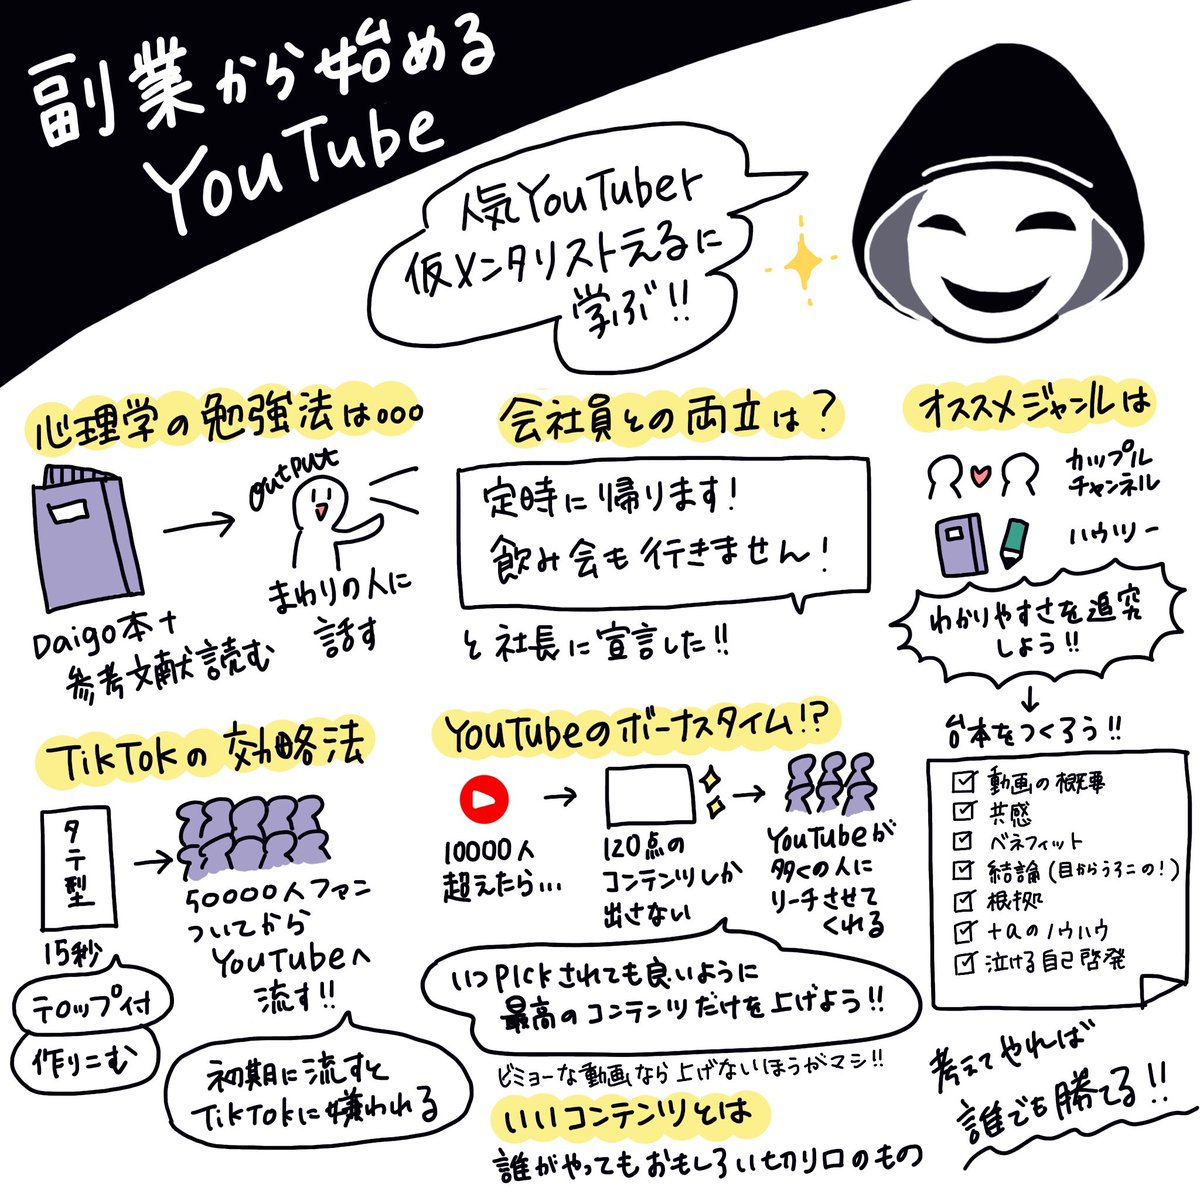 副業から始める
YouTube
人気YouTuber
仮メンタリストえるに
学ぶ!!
心理学の勉強法は。。。
output
Daigo本+
参考文献読む
まわりの人に
話す
会社員との両立は?
定時に帰ります!
飲み会も行きません!
と社長に宣言した!!
オススメジャンルは
カップル
チャンネル
ハウツー
わかりやすさを追究
しよう!!
↓
台本をつくろう!!
動画の概要
共感
ベネフィット
結論(目からうろこの!)
根拠
+αのノウハウ
泣ける自己啓発
考えてやれば
誰でも勝てる!!
TikTokの効略法
タテ型
15秒
テロップ付
作りこむ
50000人ファン
ついてから
YouTubeへ
流す!!
初期に流すと
TikTokに嫌われる
YouTubeのボーナスタイム!?
10000人
超えたら...
120点の
コンテンツしか
出さない
YouTubeが
多くの人に
リーチさせて
くれる
いつPICKされても良いように
最高のコンテンツだけを上げよう!!
ビミョーな動画なら上げないほうがマシ!!
いいコンテンツとは
誰がやってもおもしろい切り口のもの